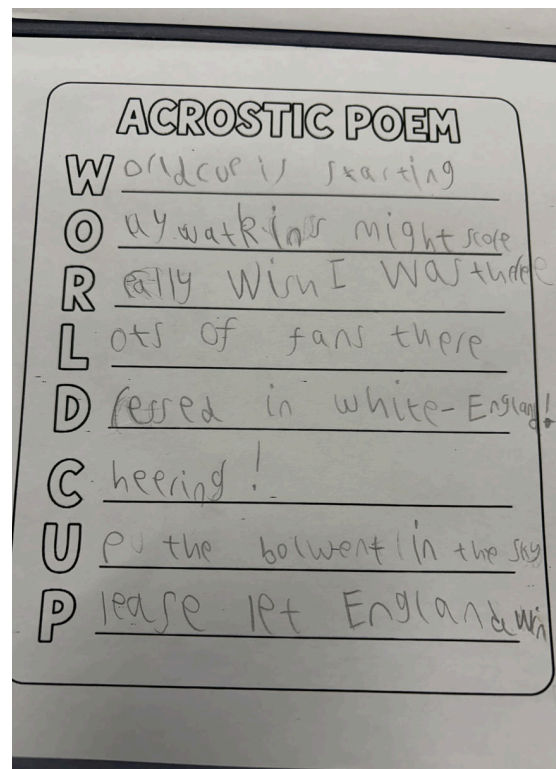 ACROSTIC POEM
Worldcup is starting
Oay watkins might score
Really wish I was there
Lots of fans there
Dressed in white-England!
Cheering!
Up the bolwent in the sky
Please let England win